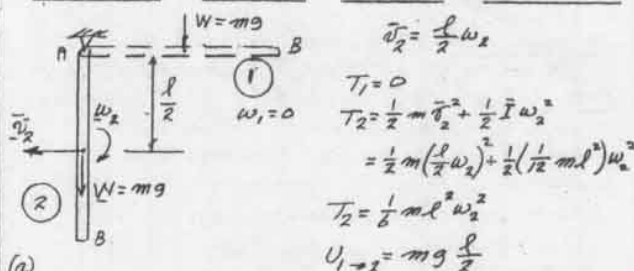 W = mg
A
B
①
l/2
ω₁ = 0
v̄₂
ω₂
W = mg
②
B
(a)
v̄₂ = l/2 ω₂
T₁ = 0
T₂ = 1/2 m v̄₂² + 1/2 Ī ω₂²
= 1/2 m(l/2 ω₂)² + 1/2(1/12 ml²)ω₂²
T₂ = 1/6 ml²ω₂²
U₁→₂ = mg l/2